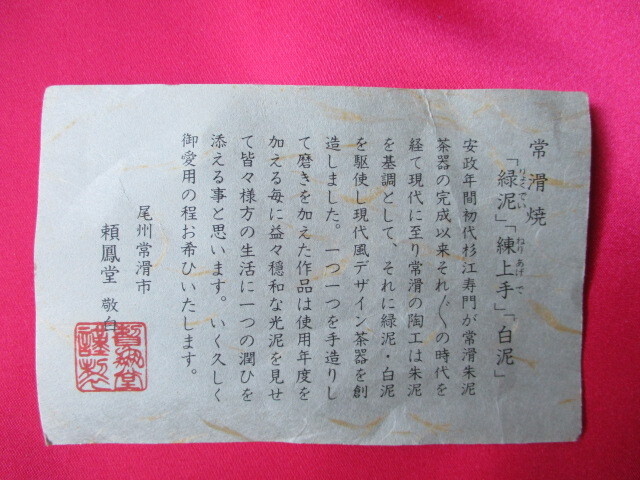 常滑焼
「緑泥」「練上手」「白泥」
りょくでい
ねりあげ で
安政年間初代杉江寿門が常滑朱泥
茶器の完成以来それ〲の時代を
経て現代に至り常滑の陶工は朱泥
を基調として、それに緑泥・白泥
を駆使し現代風デザイン茶器を創
造しました。一つ一つを手造りし
て磨きを加えた作品は使用年度を
加える毎に益々穏和な光泥を見せ
て皆々様方の生活に一つの潤ひを
添える事と思います。いく久しく
御愛用の程お希ひいたします。
尾州常滑市
頼鳳堂 敬白
謹製